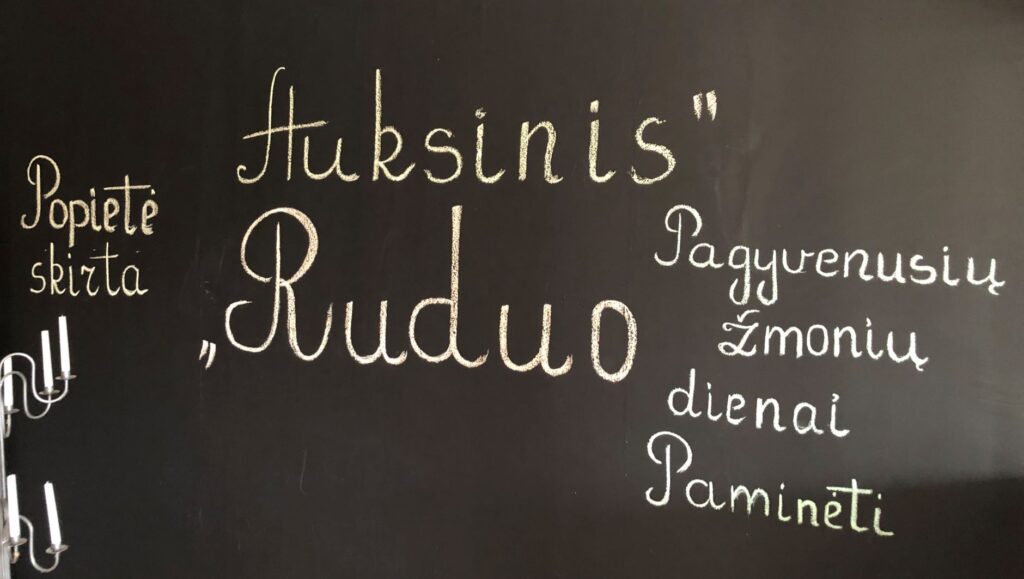 Popietė
skirta
Auksinis"
„Ruduo
Pagyvenusių
žmonių
dienai
Paminėti